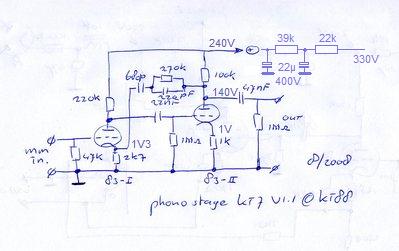 39k
22k
240V
330V
22µ
400V
270k
68cp
220pF
100k
220k
22nF
140V
47nF
1V3
1V
OUT
mm
in.
47k
2k7
1MΩ
1k
1MΩ
83-I
83-II
8/2008
phono stage kT7 v1.1 @ kT88